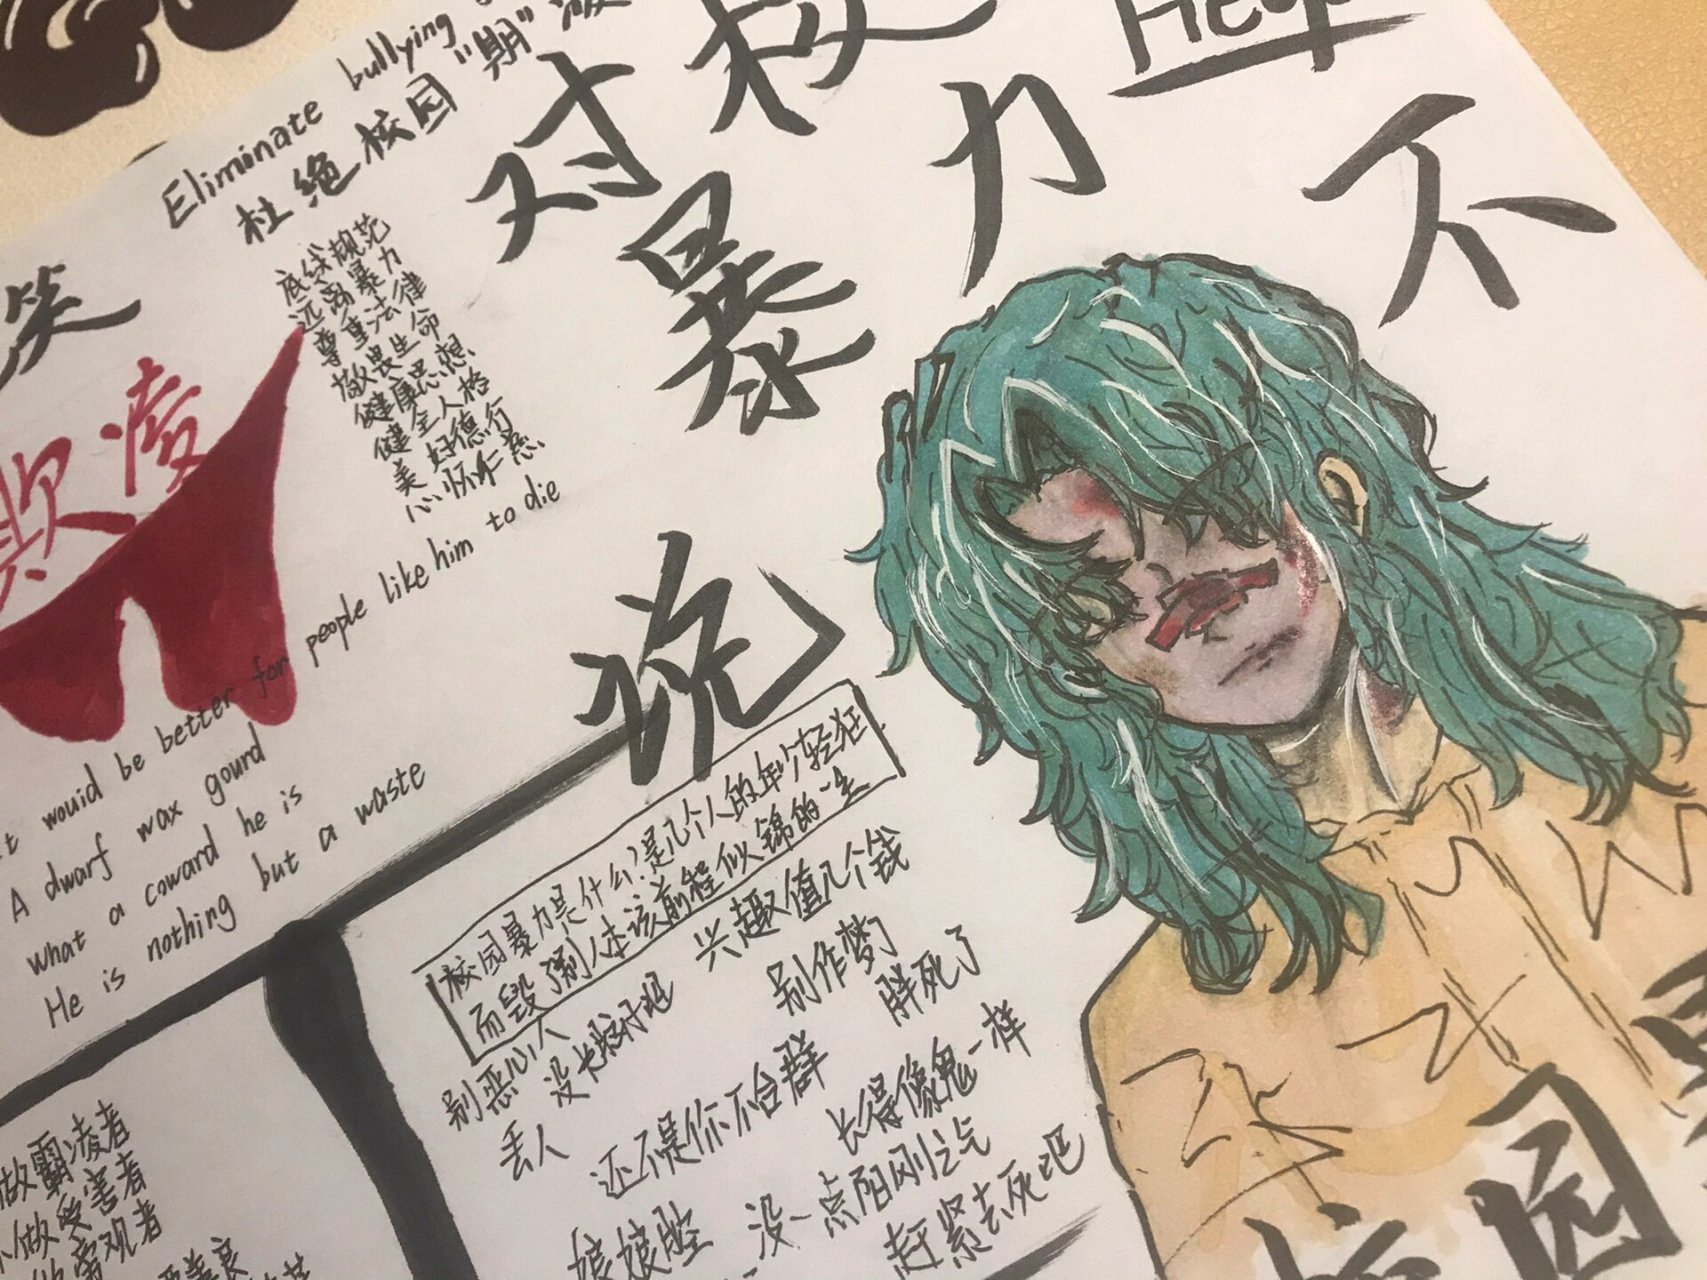 Help
Eliminate bullying
杜绝校园"期"
对校
暴力
说不
笑
欺凌
底线规范
远离暴力
尊重法律
敬畏生命
健康思想
健全人格
美好德行
心怀仁慈
t wouid be better for people like him to die
A dwarf wax gourd
what a coward he is
He is nothing but a waste
校园暴力是什么?是几个人的年少轻狂
而毁了别人本该前程似锦的一生
别恶心人
没长脑子吧
兴趣值几个钱
丢人
别作梦了
胖死了
还不是你不合群
长得像鬼一样
娘娘腔
没一点阳刚之气
赶紧去死吧
做霸凌者
不做受害者
做旁观者
善良
校园